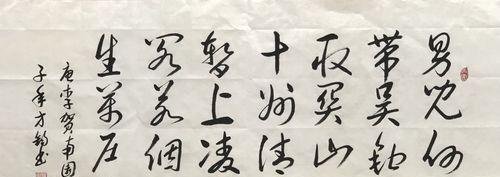 男兒何
帶吳鉤
取關山
十州請
暫上凌
閣若個
生萬戶
唐李賀南园
子年方書